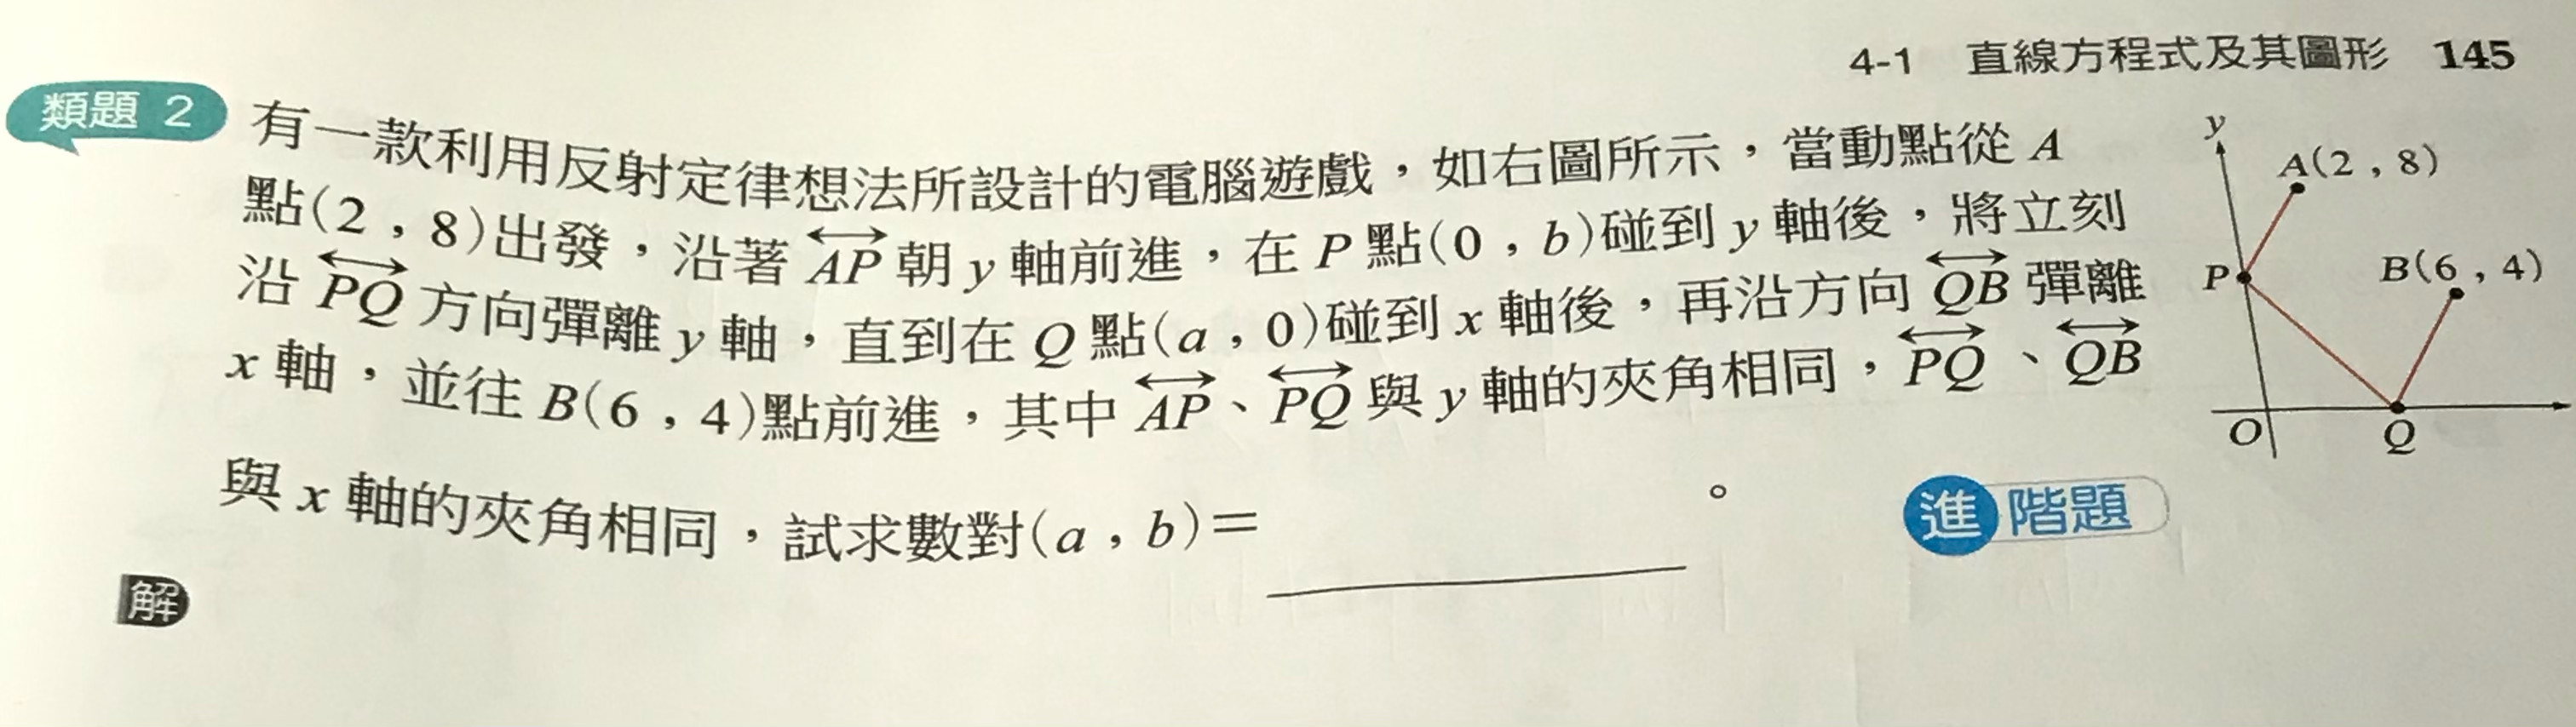 4-1 直線方程式及其圖形 145
類題 2 有一款利用反射定律想法所設計的電腦遊戲，如右圖所示，當動點從 A
點(2 , 8)出發，沿著 AP 朝 y 軸前進，在 P 點(0 , b)碰到 y 軸後，將立刻
沿 PQ 方向彈離 y 軸，直到在 Q 點(a , 0)碰到 x 軸後，再沿方向 QB 彈離
x 軸，並往 B(6 , 4)點前進，其中 AP、PQ 與 y 軸的夾角相同，PQ、QB
與 x 軸的夾角相同，試求數對(a , b)= 。
進階題
解
y
A(2 , 8)
B(6 , 4)
P
O
Q